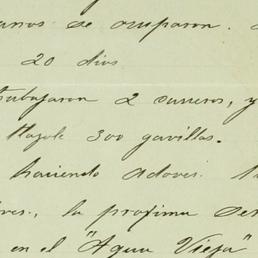 se ocuparon.
20 dias
trabajaron 2 carreros, y
tlazole 300 gavillas.
haciendo adoves.
la proxima
en el "Agua Vieja"